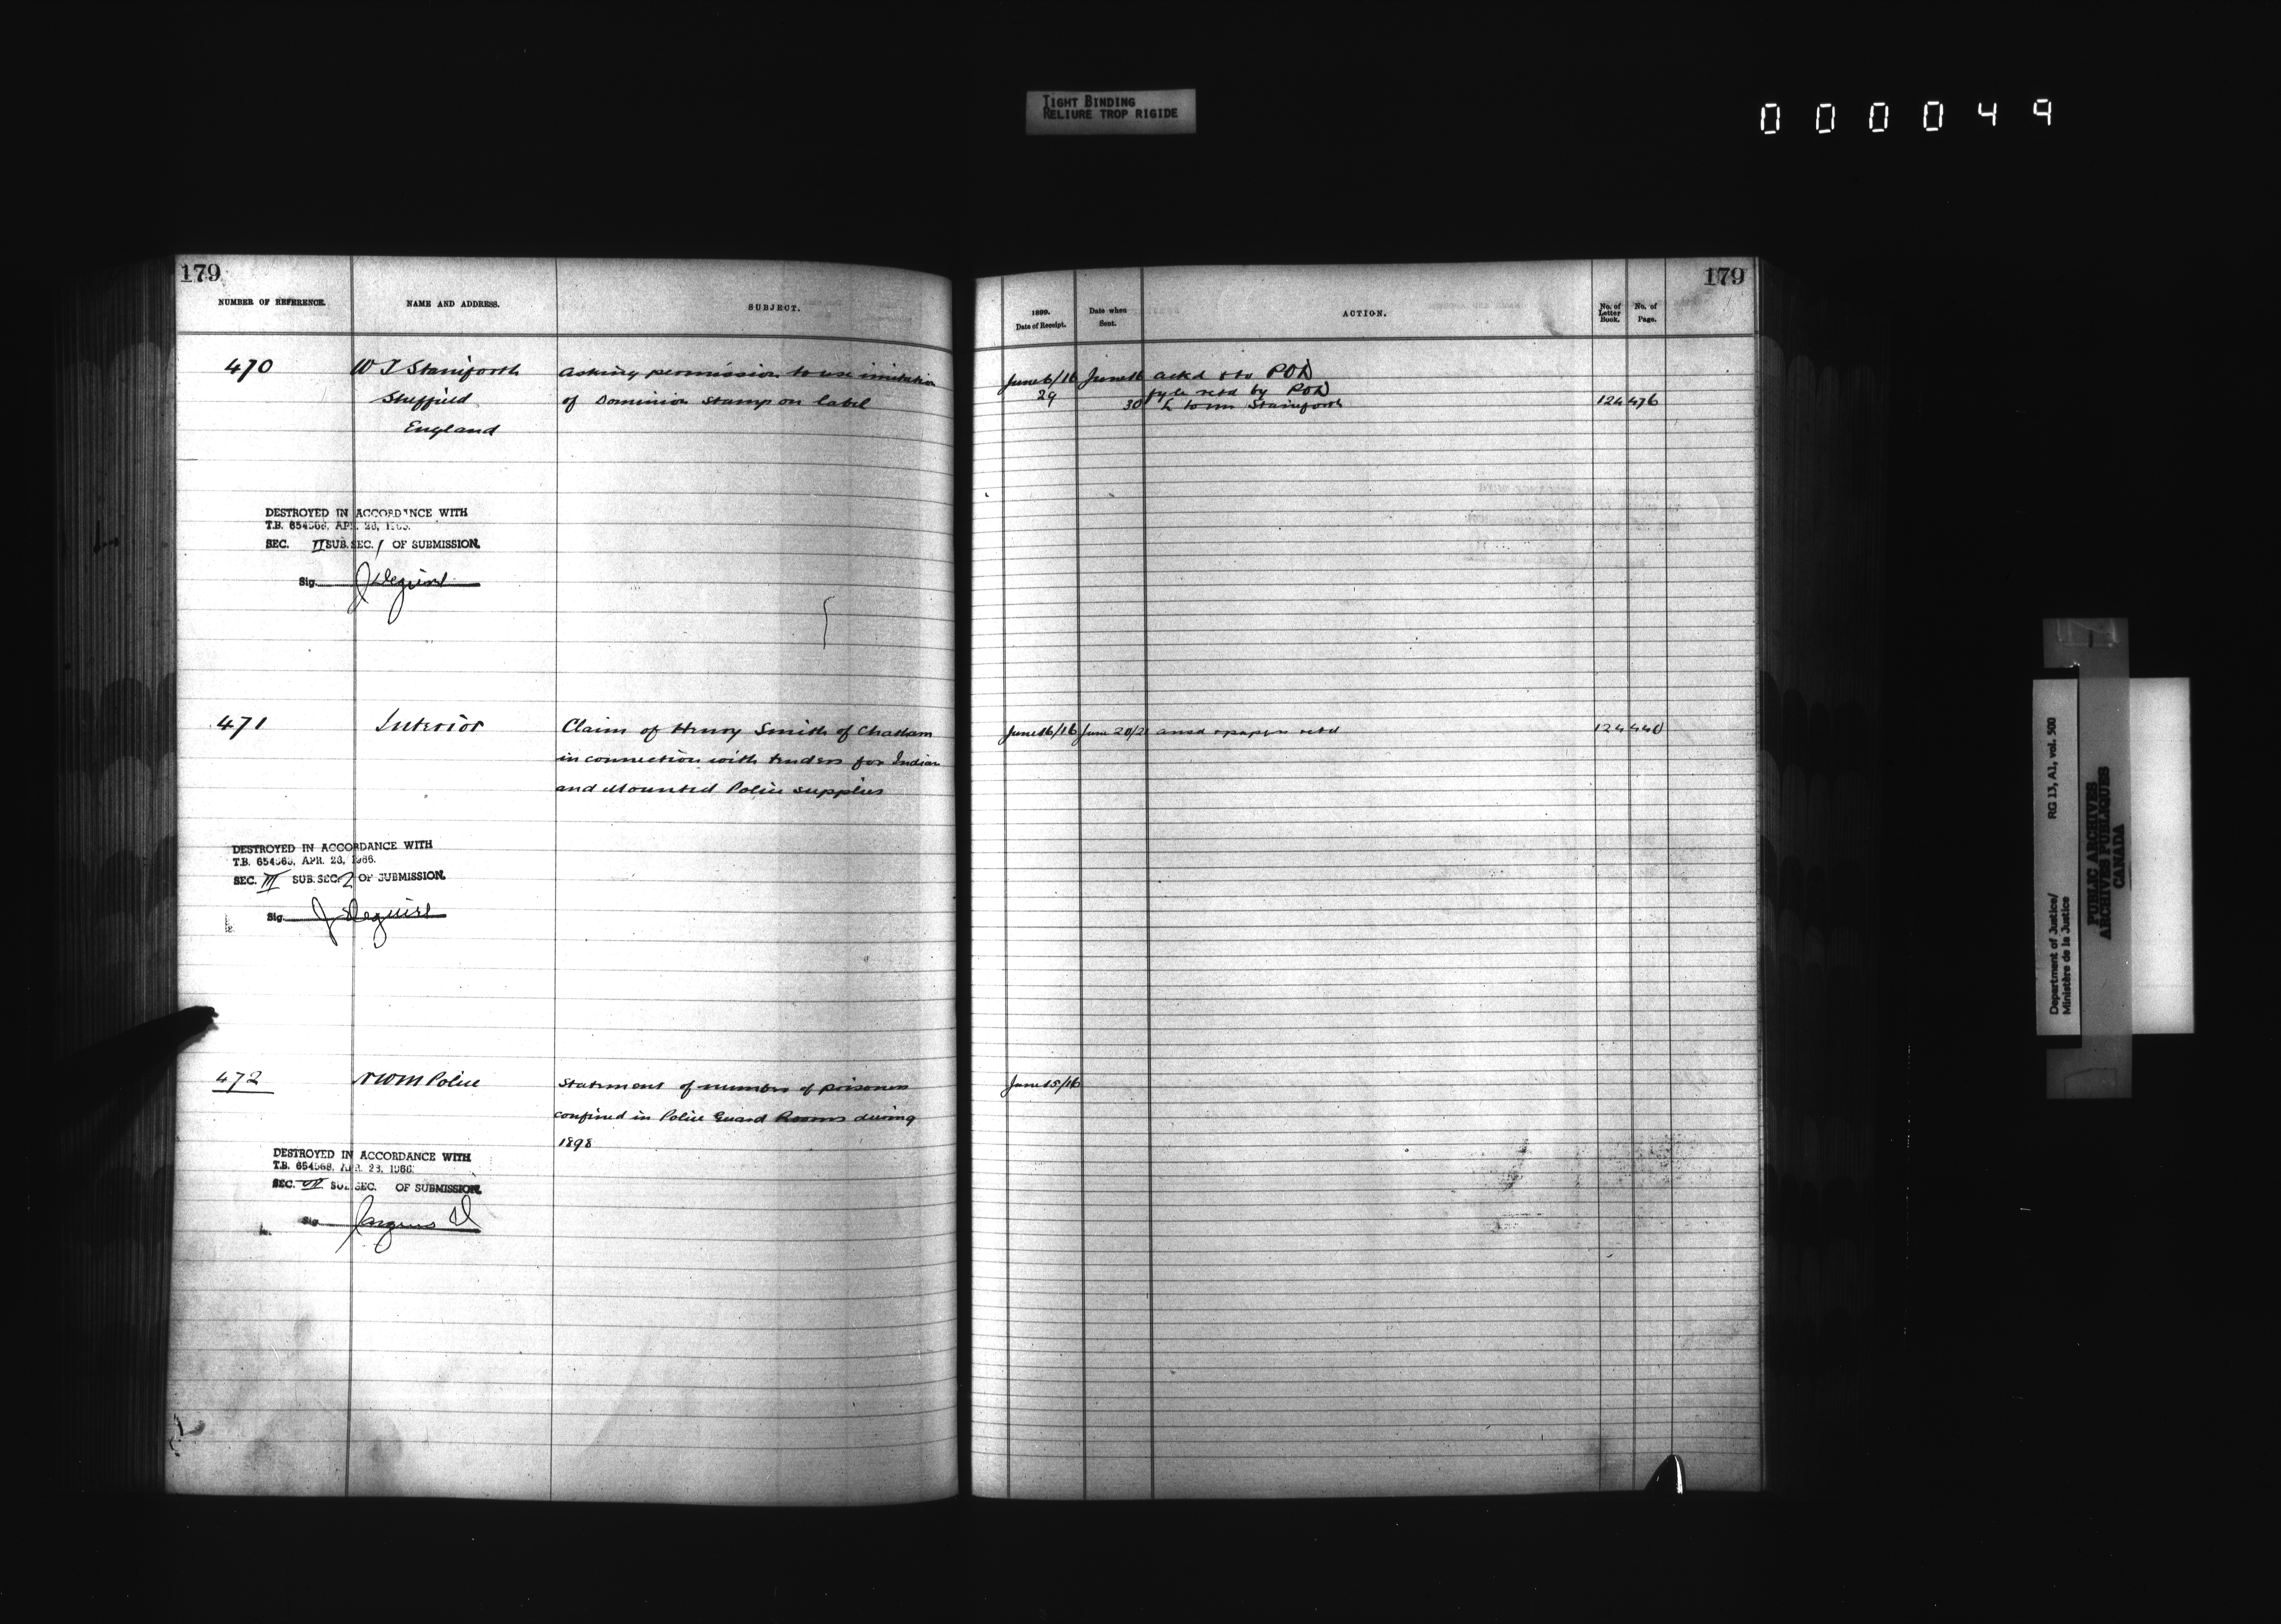 TIGHT BINDING
RELIURE TROP RIGIDE
000049
179
NUMBER OF REFERENCE.
NAME AND ADDRESS.
SUBJECT.
470
W J Staniforth
Sheffield
England
Asking permission to use imitation
of Dominion Stamp on label
DESTROYED IN ACCORDANCE WITH
T.B. 654568, APR. 28, 1966.
SEC. II SUB. SEC. 1 OF SUBMISSION.
Sig.
471
Interior
Claim of Henry Smith of Chatham
in connection with tenders for Indian
and Mounted Police supplies
DESTROYED IN ACCORDANCE WITH
T.B. 654568, APR. 28, 1966.
SEC. III SUB. SEC. 2 OF SUBMISSION.
Sig.
472
NWM Police
Statement of number of prisoners
confined in Police Guard Rooms during
1898
DESTROYED IN ACCORDANCE WITH
T.B. 654568, APR. 28, 1966.
SEC. SUB. SEC. OF SUBMISSION.
Sig.
179
1899.
Date of Receipt.
Date when
Sent.
ACTION.
No. of
Letter
Book.
No. of
Page.
June 6/16 June 16 ackd & to POD
29 fyle retd by POD
30 L to Staniforth 124 476
June 16/16 June 20/21 ansd & papers retd 124 440
June 15/16
Department of Justice/ RG 13, A1, vol. 500
Ministère de la Justice
PUBLIC ARCHIVES
ARCHIVES PUBLIQUES
CANADA